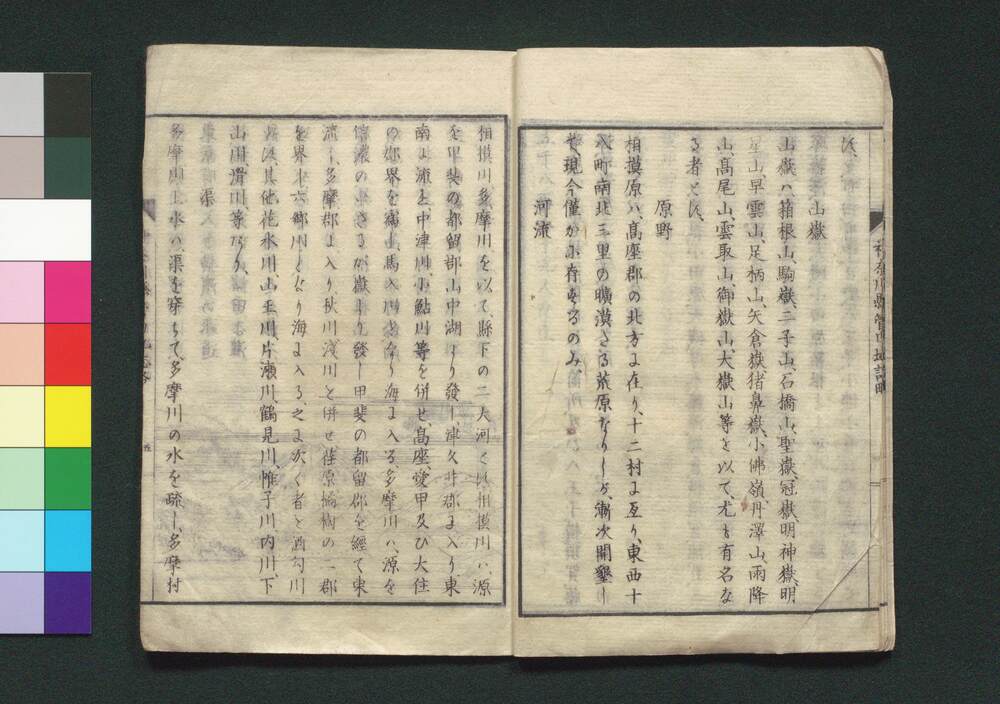 す、
山嶽
山嶽ハ箱根山、駒嶽、二子山、石橋山、聖嶽、冠嶽、明神嶽、明
星山、早雲山、足柄山、矢倉嶽、猪鼻嶽、小佛嶺、丹澤山、雨降
山、高尾山、雲取山、御嶽山、大嶽山等を以て、尤も有名な
る者とす、
原野
相摸原ハ、高座郡の北方に在り、十二村に亙り、東西十
町南北三里の曠漠たる荒原なりしが、漸次開墾し
て現今僅かに存するのみ、
河流
相摸川、多摩川を以て、縣下の二大河とす、相摸川ハ、源
を甲斐の都留郡山中湖より發し、津久井郡に入り東
南に流れ、中津川、小鮎川等を併せ、高座、愛甲及ひ大住
の郡界を馬入川となり海に入る、多摩川ハ、源を
より發し甲斐の都留郡を經て東
流し、多摩郡に入り、秋川、淺川と併せ荏原橘樹の二郡
を界し、六郷川となり海に入る、之に次く者を酒匂川
とす、其他花水川、山王川、片瀬川、鶴見川、帷子川、内川、下
山川、滑川、等なり、
渠
多摩川上水ハ、渠を穿ちて、多摩川の水を疏し、多摩村
神奈川縣管内地誌略
五